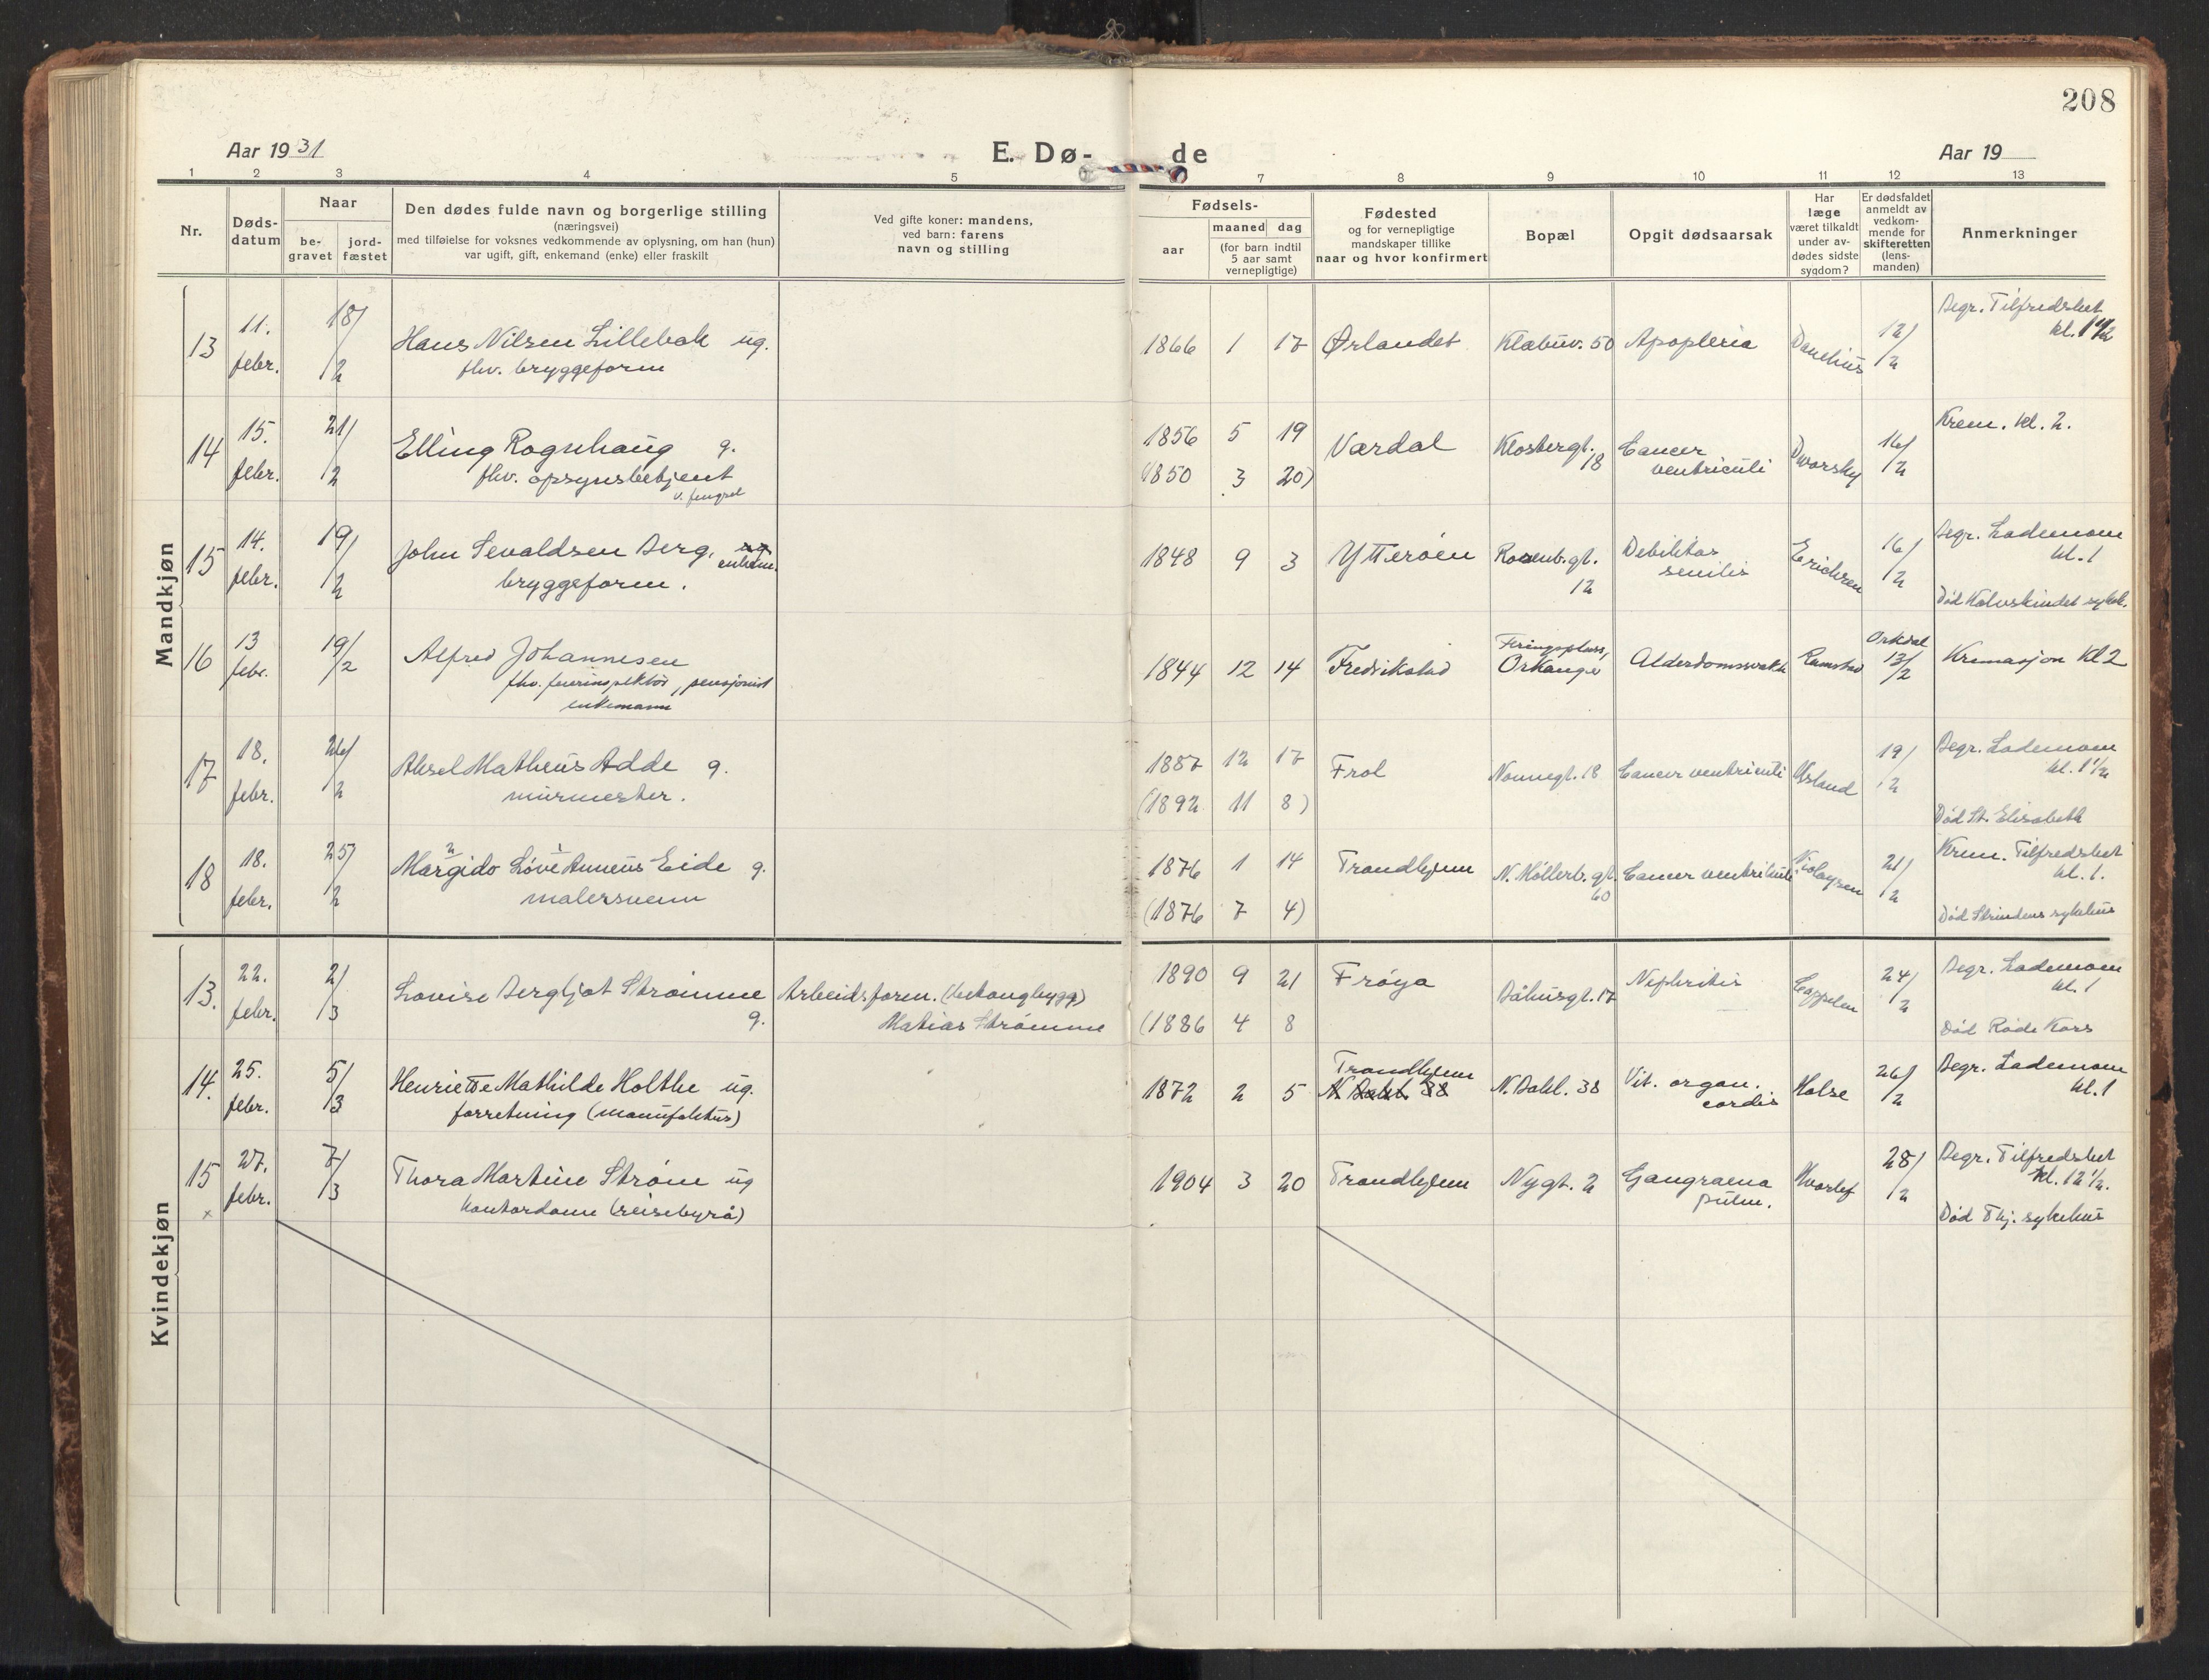 208
Aar 1931
E. Dø-
de
Aar 19
1 2 3 4 5 7 8 9 10 11 12 13
Nr.
Døds-
datum
Naar
be-
gravet
jord-
fæstet
Den dødes fulde navn og borgerlige stilling
(næringsvei)
med tilføielse for voksnes vedkommende av oplysning, om han (hun)
var ugift, gift, enkemand (enke) eller fraskilt
Ved gifte koner: mandens,
ved barn: farens
navn og stilling
Fødsels-
aar
maaned dag
(for barn indtil
5 aar samt
vernepligtige)
Fødested
og for vernepligtige
mandskaper tillike
naar og hvor konfirmert
Bopæl
Opgit dødsaarsak
Har
læge
været tilkaldt
under av-
dødes sidste
sygdom?
Er dødsfaldet
anmeldt av
vedkom-
mende for
skifteretten
(lens-
manden)
Anmerkninger
Mandkjøn
13
11.
febr.
18/2
Hans Nilsen Lillebak ug.
fhv. bryggeform
1866 1 17
Ørlandet
Klæbuv. 50
Apoplexia
Danelius
12/2
Begr. Tilfredshet
kl. 1 1/2
14
15.
febr.
21/2
Elling Rognhaug g.
fhv. opsynsbetjent
v. fengsel
1856 5 19
(1850 3 20)
Værdal
Klostergt.
18
Cancer
ventriculi
Dworsky
16/2
Krem. kl. 2.
15
14.
febr.
19/2
John Sevaldsen Berg, ug
enkem.
bryggeform.
1848 9 3
Ytterøen
Rosenb.gt.
12
Debilitas
senilis
Erichsen
16/2
Begr. Lademoen
kl. 1
Død Kalvskindet sykeh.
16
13
febr.
19/2
Alfred Johannesen
fhv. feierinspektør, pensjonist
enkemann
1844 12 14
Fredrikstad
Orkanger
Alderdomssvakh
Ramstad
Orkdal
13/2
Kremasjon Kl 2
17
18.
febr.
26/2
Aksel Matheus Adde g.
murmester.
1887 12 17
(1892 11 8)
Frol
Nonnegt. 18
Cancer ventriculi
19/2
Begr. Lademoen
kl. 1 1/2
Død St. Elisabeth
18
18.
febr.
25/2
2 1
Margido Løve Anneus Eide g.
malersvenn
1876 1 14
(1876 7 4)
Trondhjem
N. Møllenb. gt.
60
Cancer ventriculi
Nicolaysen
21/2
Krem. Tilfredshet
kl. 1.
Død Strindens sykehus
Kvindekjøn
13.
22.
febr.
2/3
Lovise Bergljot Strømme
g.
Arbeidsform. (betongbygg)
Matias Strømme
1890 9 21
(1886 4 8
Frøya
Båhusgt. 17
Nephritis
Cappelen
24/2
Begr. Lademoen
kl. 1
Død Røde Kors
14.
25.
febr.
5/3
Henriette Mathilde Holthe ug.
forretning (manufaktur)
1872 2 5
Trondhjem
N. Dahl. 38
N. Dahl. 38
Vit. organ.
cordis
Halse
26/2
Begr. Lademoen
kl. 1
15
27.
febr.
7/3
Thora Martine Strøm ug
kontordame (reisebyrå)
1904 3 20
Trondhjem
Nygt. 2
Gangraena
pulm.
28/2
Begr. Tilfredshet
kl. 12 1/2.
Død Thj. sykehus